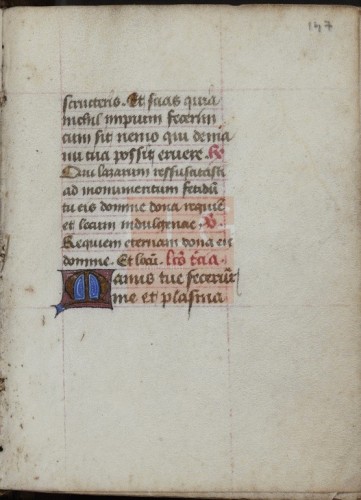 147
scruteris. Et scias quia
nichil impium fecerim
cum sit nemo qui de ma
nu tua possit eruere. R̃
Qui lazarum ressuscitasti
ad monumentum fetidũ
tu eis domine dona requiẽ
et locum indulgencie. Ṽ.
Requiem eternam dona eis
domine. Et locũ. lc̃o t̃cia.
Manus tue fecerũt
me et plasma